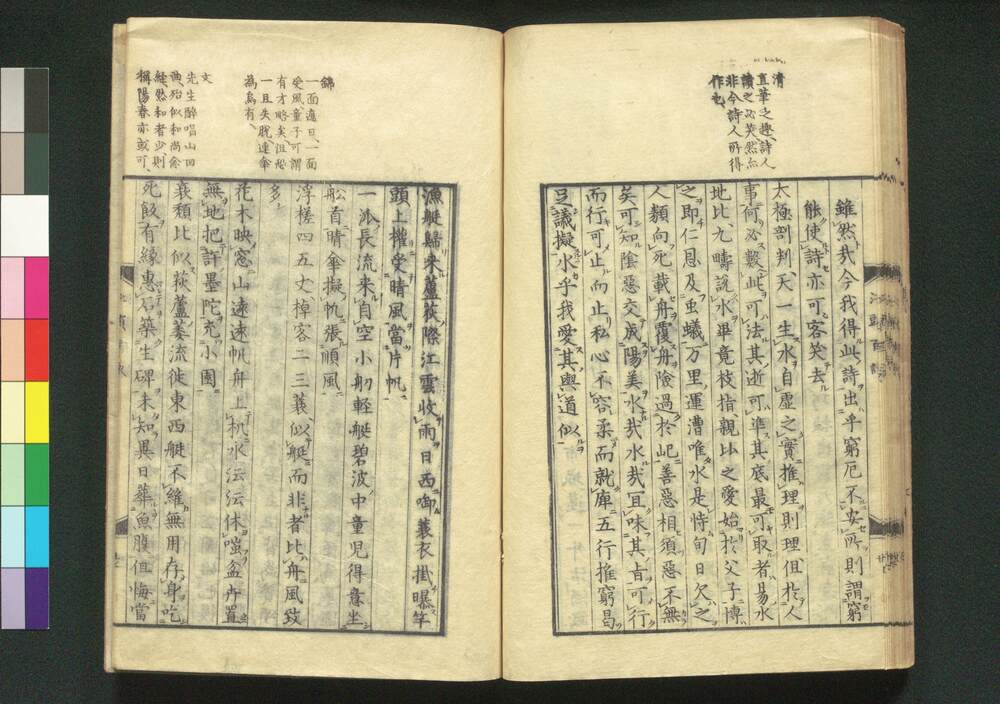 清
直筆之趣、詩人
讀之必笑、然而
非今詩人所得
作也
雖然哉今我得此詩出乎窮厄不安所則謂窮
能使詩亦可客笑去
太極剖判天一生水自虛之實推理則理但於人
事何必數此可法其逝可準其底最可取者易水
地比九疇說水畢竟枝指親比之愛始於父子博
之即仁恩及虫蟻万里運漕唯水是恃旬日欠之
人類向死載舟覆舟險過於屺善惡相須惡不無
矣可知陰惡交成陽美水哉水哉宜味其旨可行
而行可止而止私心不容柔而就庳五行推窮曷
足議擬水乎我愛其與道似
錦
一面遮日、一面
受風、童子可謂
有才略矣、但恐
一旦失脫連傘
為烏有、
文
先生醉唱山田
典殆似和尚念
經然和者少則
稱陽春亦或可、
漁艇歸来蘆荻際江雲收雨日西啣蓑衣掛曝竿
頭上權受晴風當片帆
一派長流来自空小舠軽艇碧波中童児得意坐
舩首晴傘擬帆張順風
浮槎四五丈棹客二三蓑似艇而非者比舟風致
多
花木映窓山遠遠帆舟上机水沄沄休嗤盆卉置
無地把許墨陀充小園
衰頽比似荻蘆萎流徙東西艇不維無用存身吃
死飯有緣惠石築生碑未知異日葬魚腹但悔當